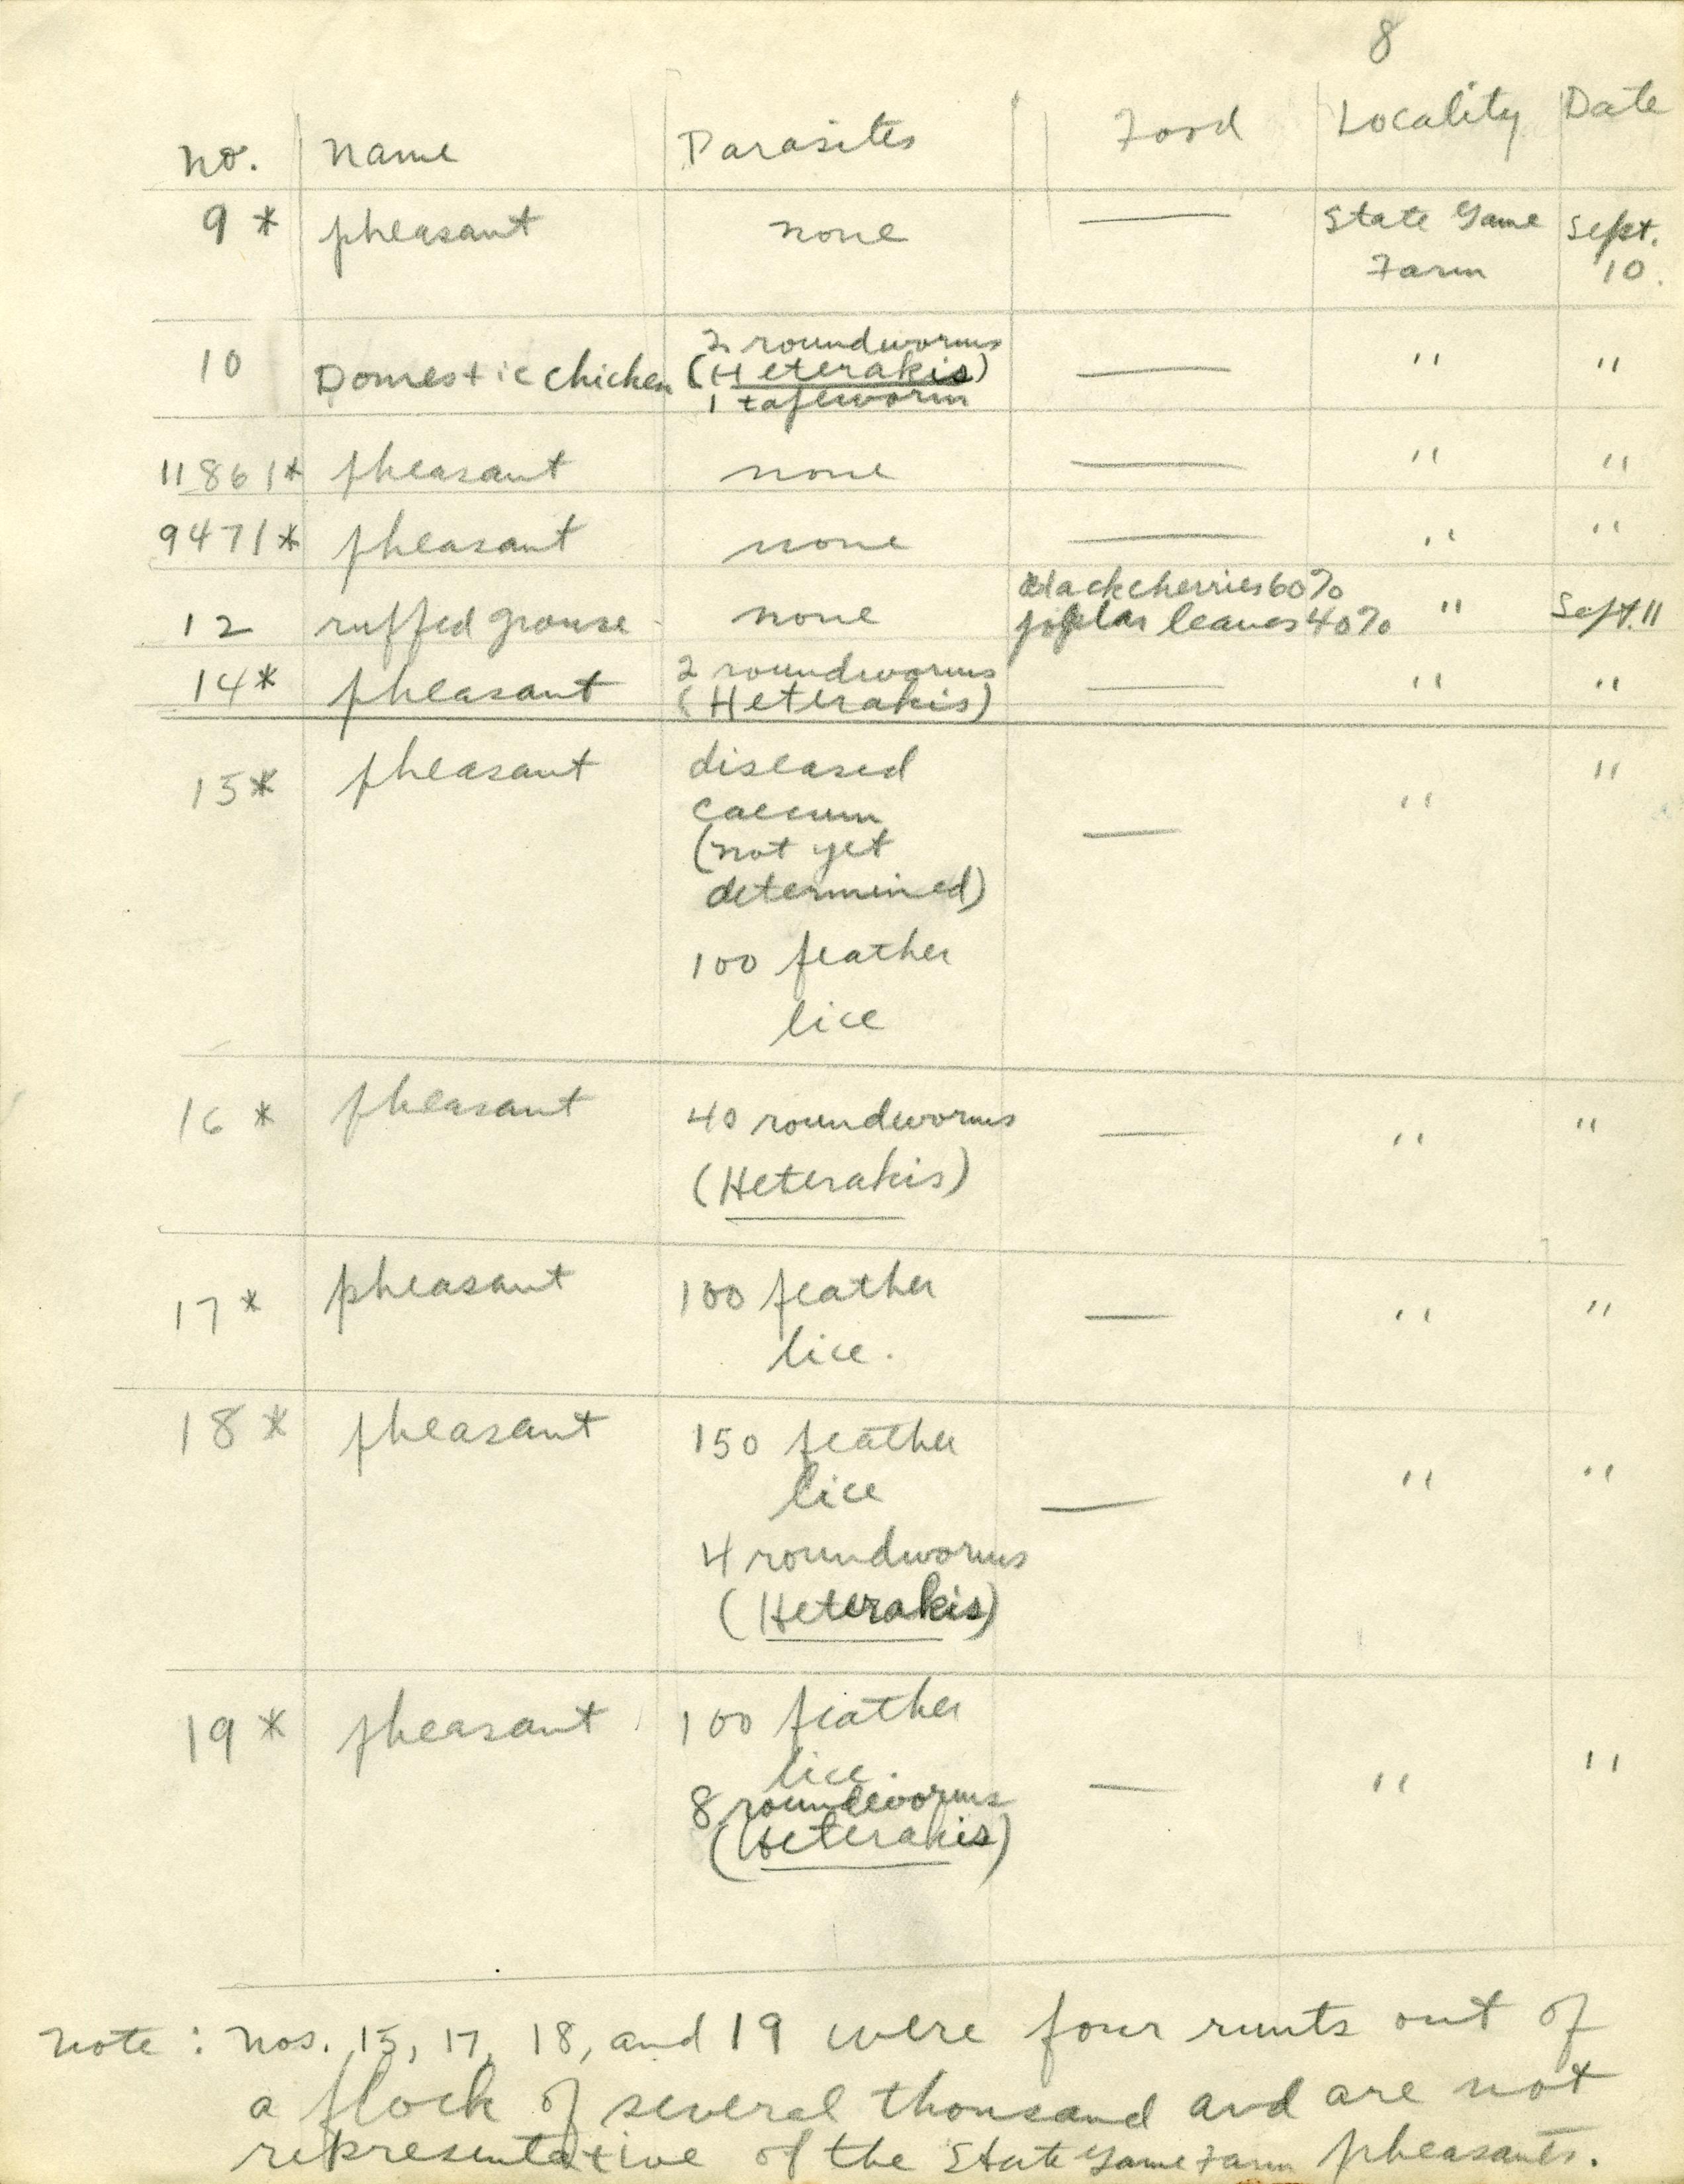 8
No. Name Parasites Food Locality Date
9* pheasant none — State Game Sept.
Farm 10.
2 roundworms
10 Domestic chicken (Heterakis) — " "
1 tapeworm
11861* pheasant none — " "
9471* pheasant none — " "
black cherries 60%
12 ruffed grouse none poplar leaves 40% " Sept. 11
2 roundworms
14* pheasant (Heterakis) — " "
15* pheasant diseased — " "
caecum
(not yet
determined)
100 feather
lice
16* pheasant 40 roundworms — " "
(Heterakis)
17* pheasant 100 feather — " "
lice.
18* pheasant 150 feather — " "
lice
4 roundworms
(Heterakis)
19* pheasant 100 feather — " "
lice.
8 roundworms
(Heterakis)
Note: Nos. 15, 17, 18, and 19 were four runts out of
a flock of several thousand and are not
representative of the State Game Farm pheasants.